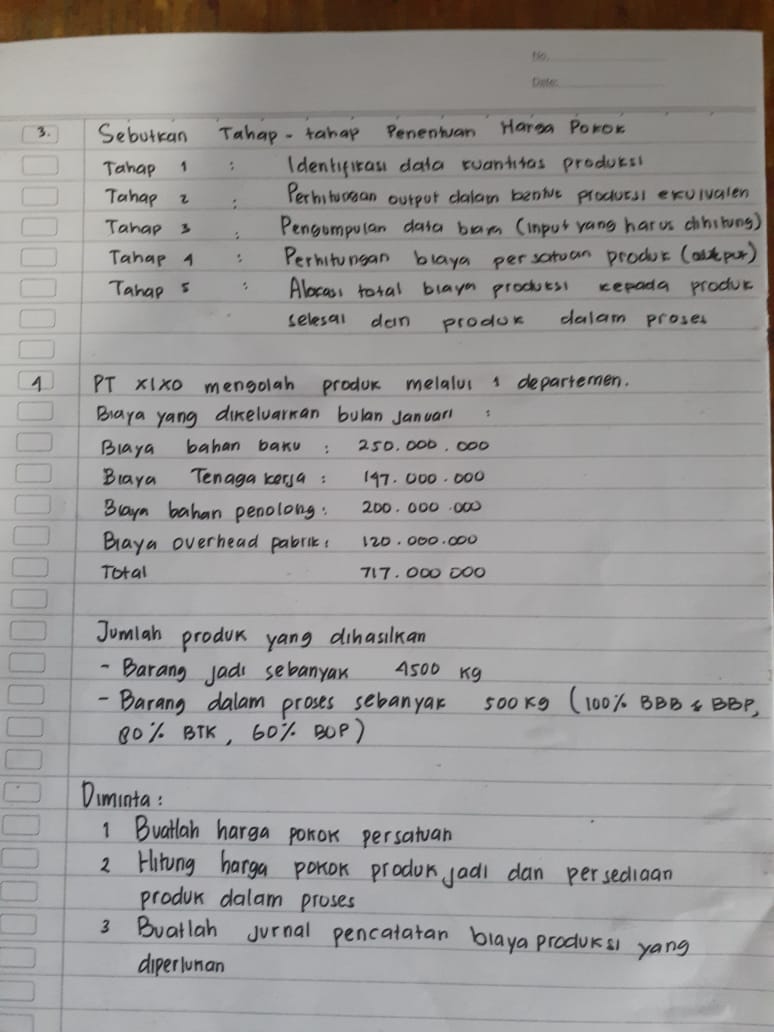 No.
Date:
3. Sebutkan Tahap - tahap Penentuan Harga Pokok
Tahap 1 : Identifikasi data kuantitas produksi
Tahap 2 : Perhitungan output dalam bentuk produksi ekuivalen
Tahap 3 : Pengumpulan data biaya (input yang harus dihitung)
Tahap 4 : Perhitungan biaya persatuan produk (output)
Tahap 5 : Alokasi total biaya produksi kepada produk
selesai dan produk dalam proses
4 PT XIXO mengolah produk melalui 1 departemen.
Biaya yang dikeluarkan bulan Januari :
Biaya bahan baku : 250.000.000
Biaya Tenaga kerja : 147.000.000
Biaya bahan penolong : 200.000.000
Biaya overhead pabrik : 120.000.000
Total 717.000 000
Jumlah produk yang dihasilkan
- Barang jadi sebanyak 4500 kg
- Barang dalam proses sebanyak 500 kg (100% BBB & BBP,
80% BTK, 60% BOP)
Diminta :
1 Buatlah harga pokok persatuan
2 Hitung harga pokok produk jadi dan persediaan
produk dalam proses
3 Buatlah jurnal pencatatan biaya produksi yang
diperlukan